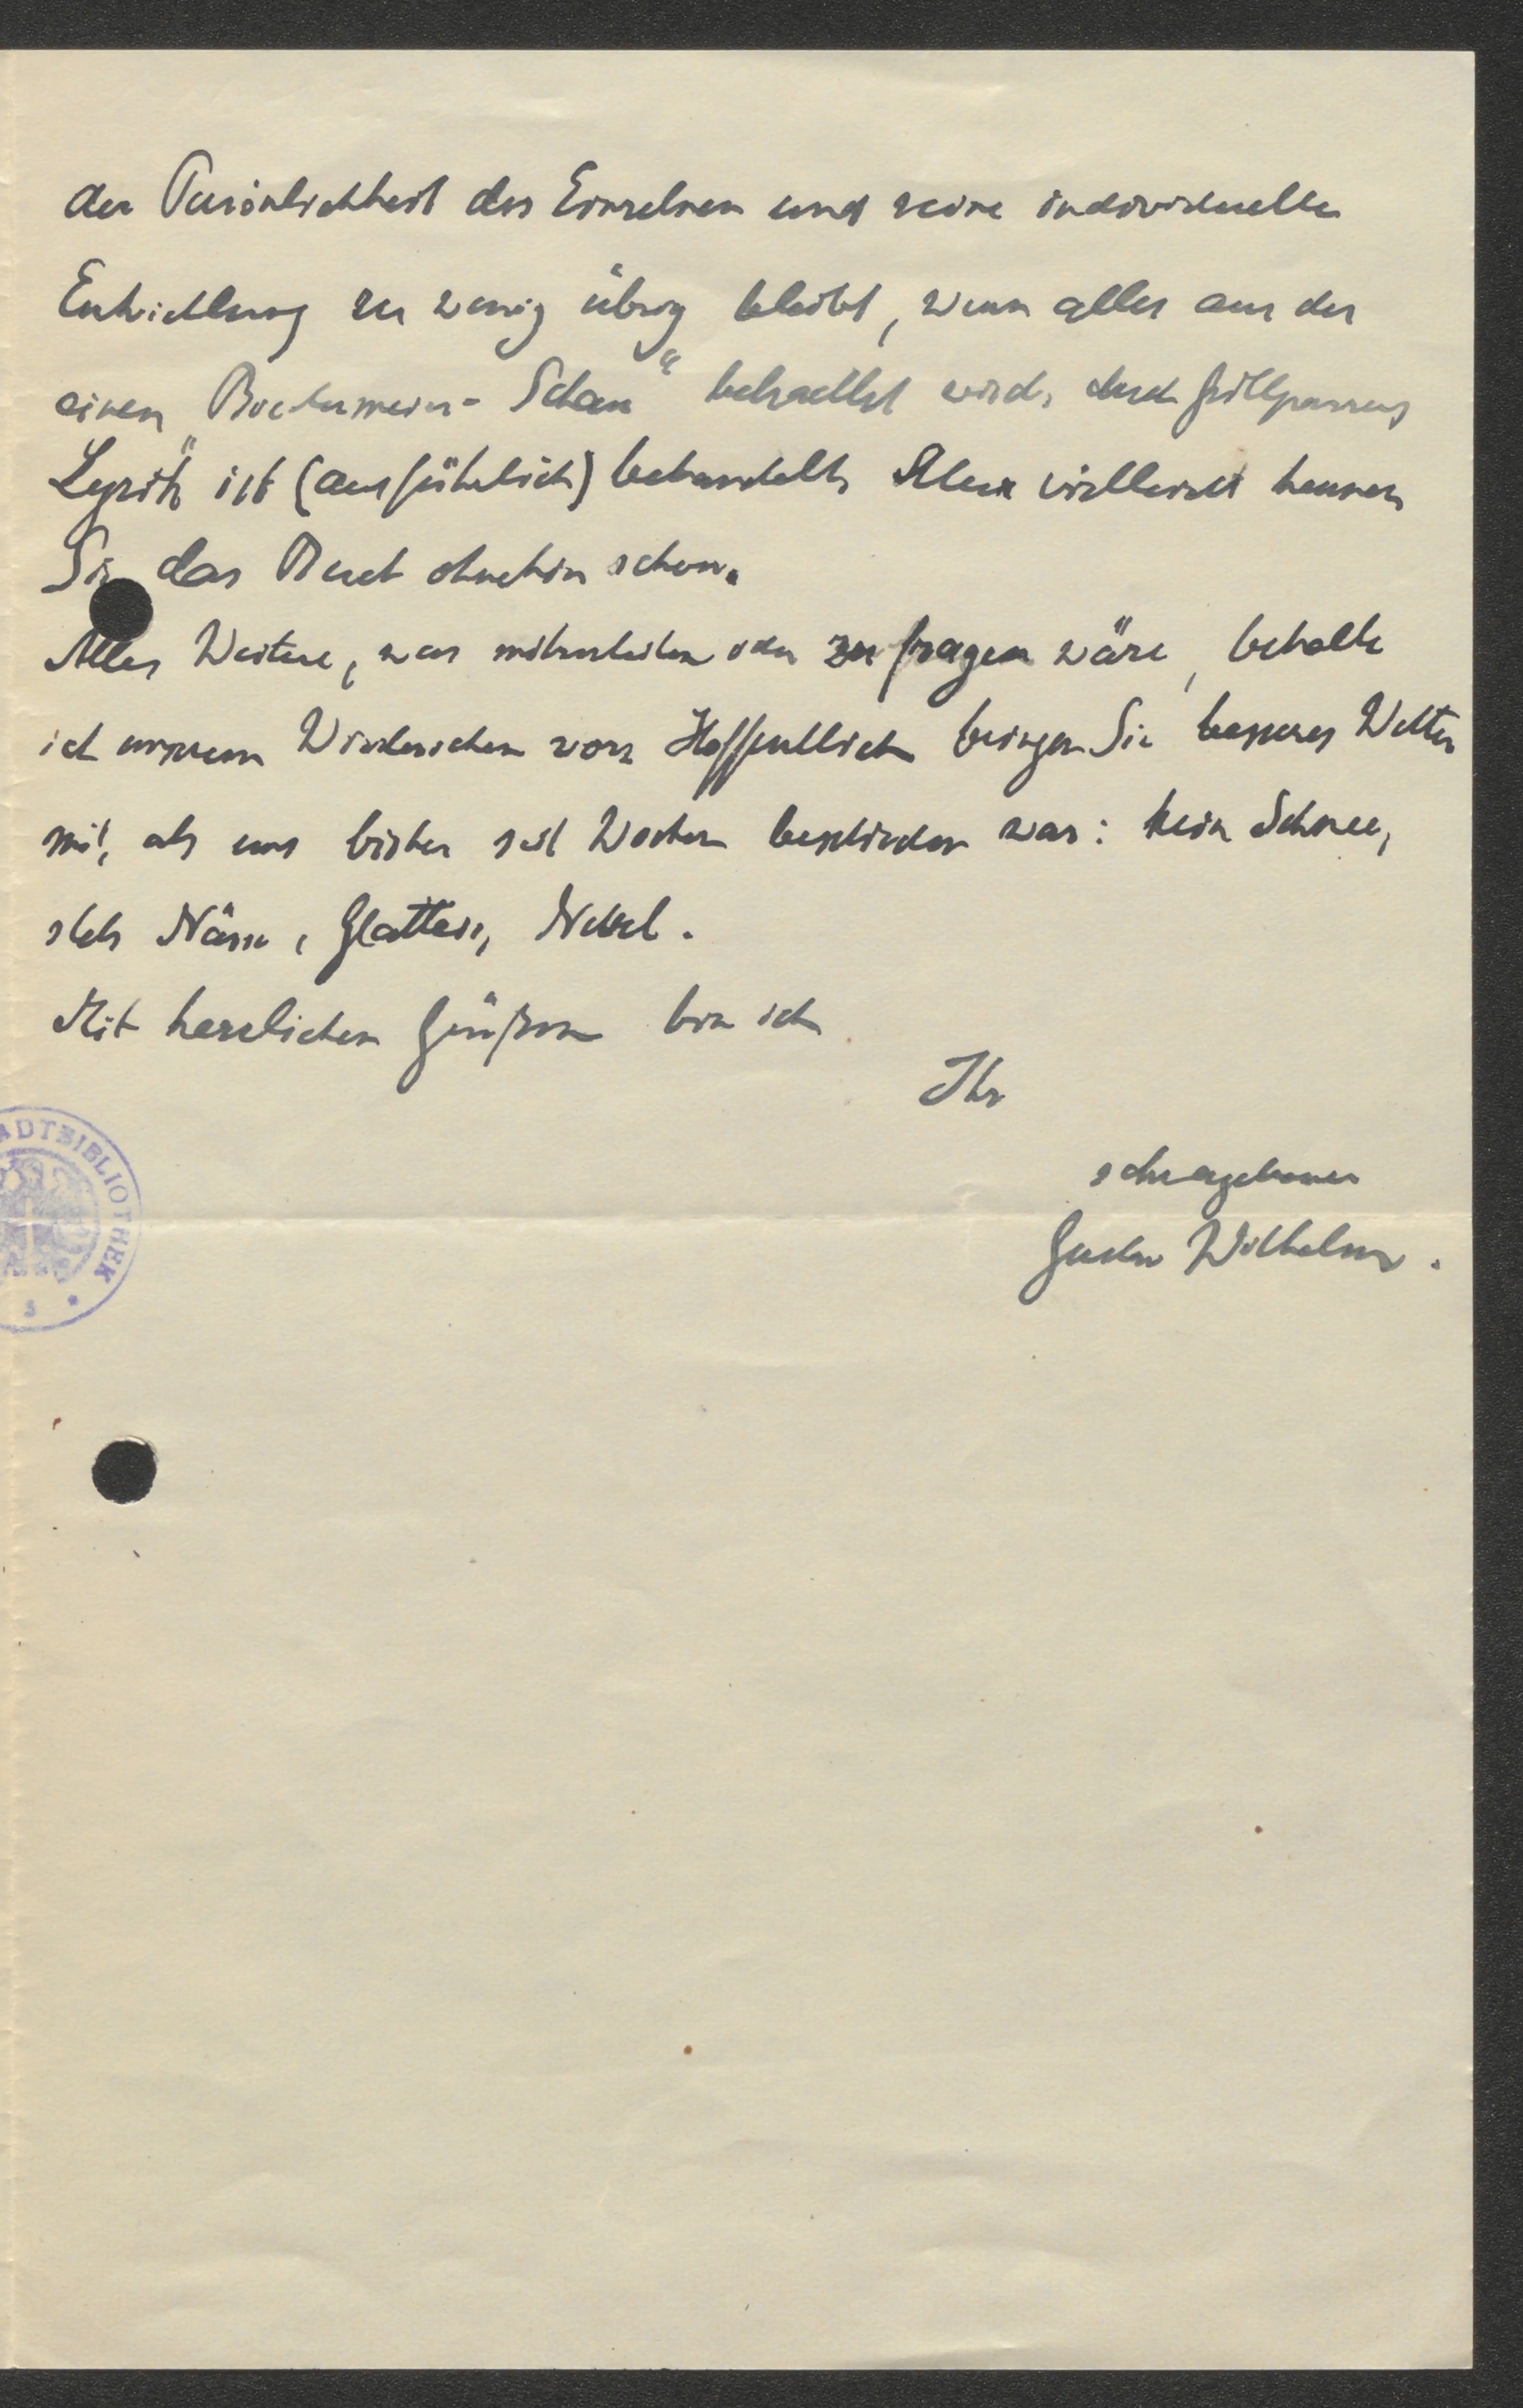 der Persönlichkeit des Einzelnen und seine individuelle
Entwicklung zu wenig übrig bleibt, wenn alles aus der
einen „Biedermeier-Schau“ betrachtet wird. Auch Grillparzers
Lyrik ist (ausführlich) behandelt. Aber vielleicht kennen
Sie das Buch ohnehin schon.
Alles Weitere, was mitzuteilen oder zu fragen wäre, behalte
ich unserem Wiedersehen vor. Hoffentlich bringen Sie besseres Wetter
mit, als uns bisher seit Wochen beschieden war: kein Schnee,
stets Nässe, Glatteis, Nebel.
Mit herzlichen Grüßen bin ich
Ihr
sehr ergebener
Gustav Wilhelm.
ADTBIBLIOTHEK